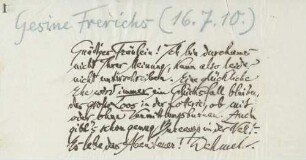 I
Gesine Frerichs (16.7.10.)
Gnädiges Fräulein! Ich bin durchaus
nicht Ihrer Meinung, kann also leider
nicht unterschreiben. Eine glückliche
Ehe wird immer ein Glücksfall bleiben,
das große Loos in der Lotterie, ob mit
oder ohne Vermittlungsbureau. Auch
gibt's schon genug Bureaus in der Welt.
Es lebe das Abenteuer! Dehmel.